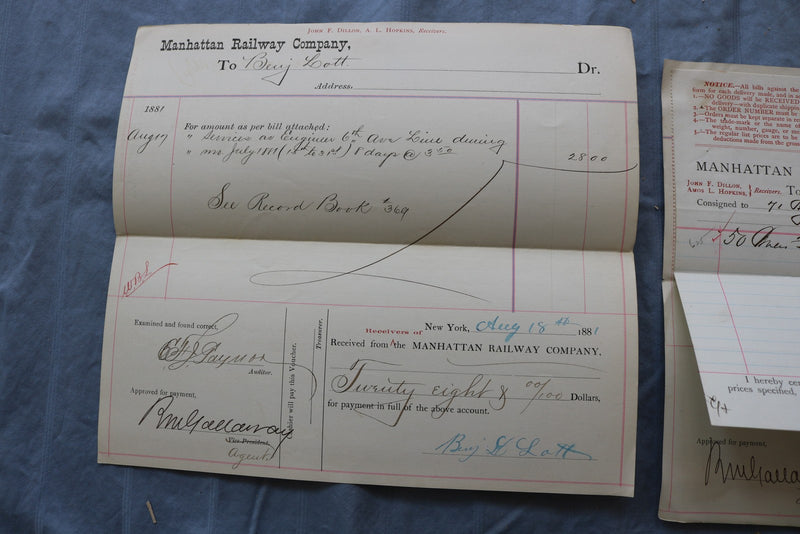 JOHN F. DILLON, A. L. HOPKINS, Receivers.
Manhattan Railway Company,
To Benj Lott Dr.
Address.
1881
Aug 17
For amount as per bill attached:
" Services as Engineer 6th Ave Line during
" mo July 1881 (1st to 31st) 8 days @ 3.50 28 00
See Record Book #369
Examined and found correct,
Auditor.
Approved for payment,
RMGallaway
Vice-President,
Agent.
Cashier will pay this Voucher.
Treasurer.
New York, Aug 18th 1881
Receivers of
Received from the MANHATTAN RAILWAY COMPANY,
Twenty eight & 00/100 Dollars,
for payment in full of the above account.
Benj K Lott
NOTICE.—All bills against the
form for each delivery made, and in
1.—NO GOODS will be RECEIVED
delivery—with duplicate shipping
2.—The ORDER NUMBER must be
3.—Orders must be kept separate in
4.—The trade-mark or the name of
weight, number, gauge, or
5.—The regular list prices are to be
deductions made from the
MANHATTAN
JOHN F. DILLON,
AMOS L. HOPKINS, Receivers. To
Consigned to 71
50
I hereby
prices specified,
Approved for payment,
RMGalla